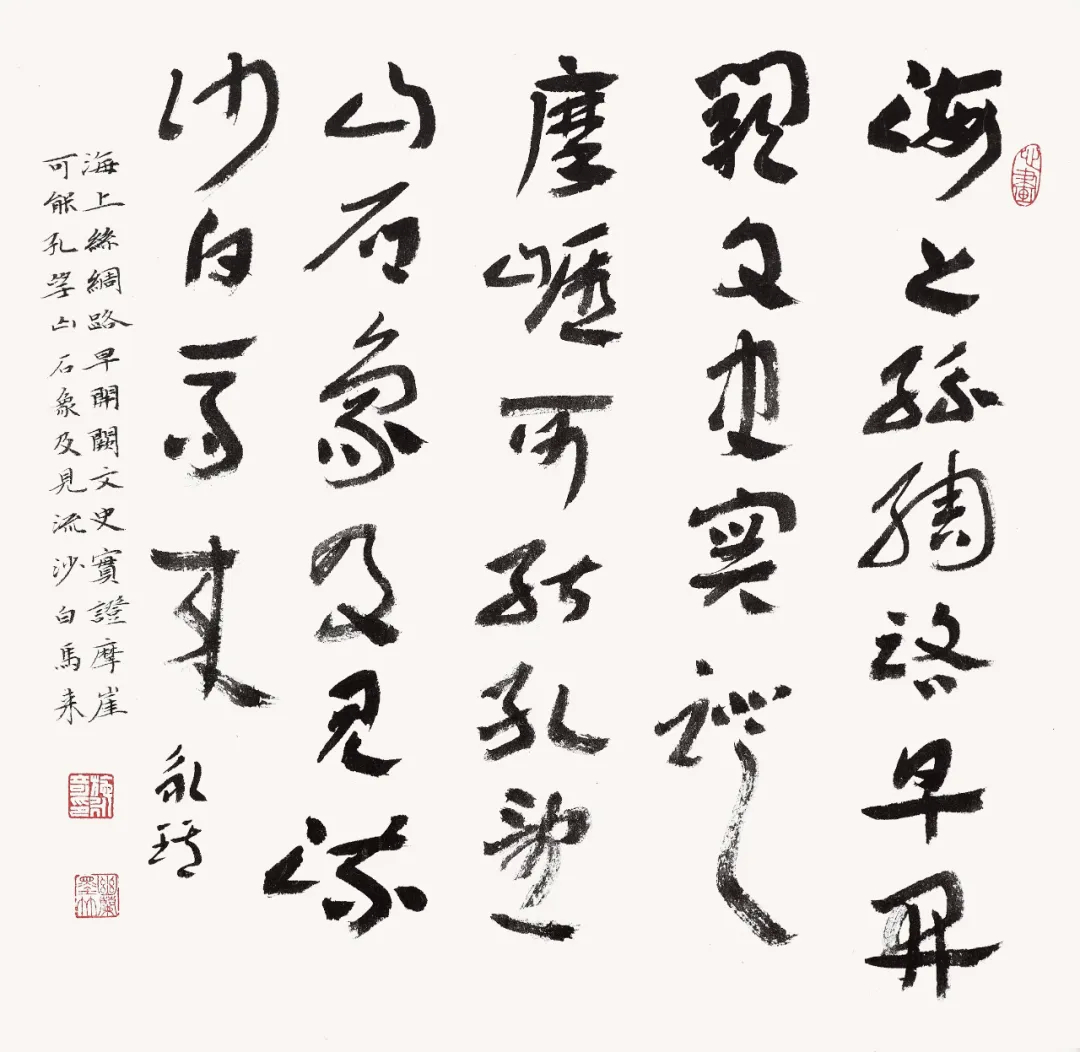 心畫
海上絲綢路早開
闕文史實證
摩崖可能孔望
山石象及見流
沙白馬来
永
海上絲綢路早開闕文史實證摩崖
可能孔望山石象及見流沙白馬来
幽蘭墨竹